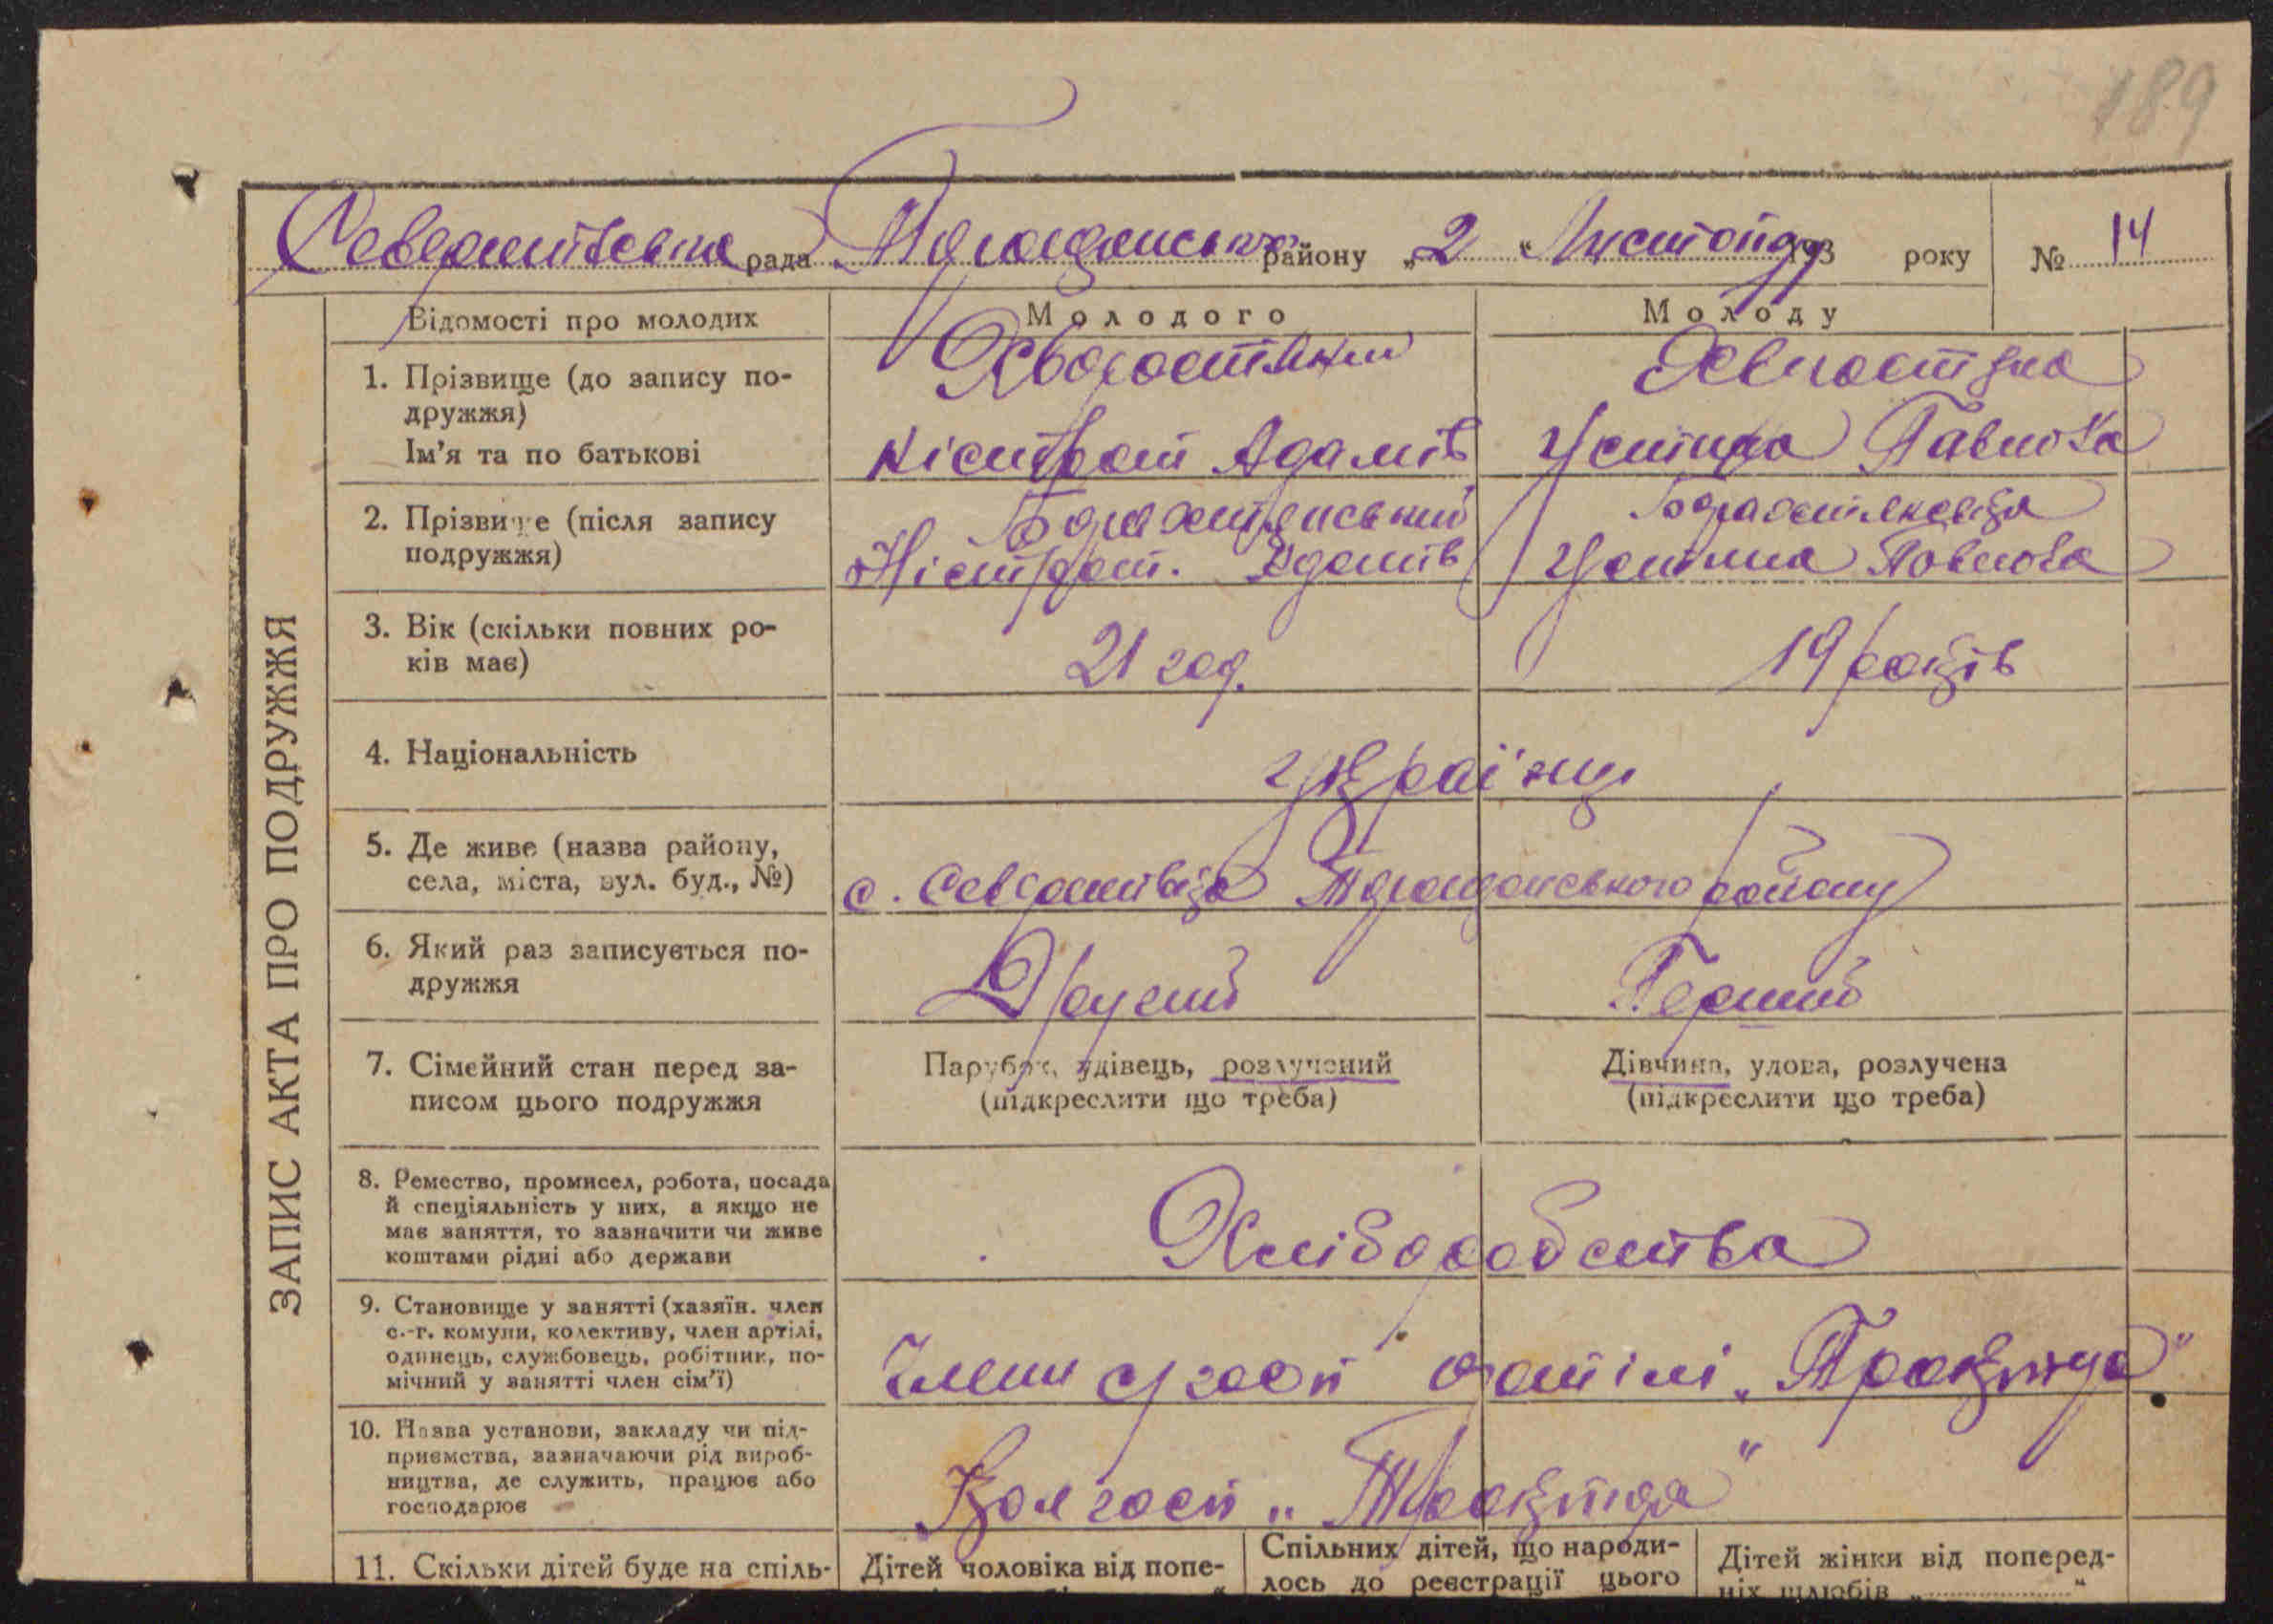 189
рада району „2“ Листопаду 193 року № 14
ЗАПИС АКТА ПРО ПОДРУЖЖЯ
Відомості про молодих
Молодого
Молоду
1. Прізвище (до запису по-
дружжя)
Ім’я та по батькові
Адамів
Устина Павлова
2. Прізвище (після запису
подружжя)
Адамів
Устина Павлова
3. Вік (скільки повних ро-
ків має)
21 год.
19 років
4. Національність
українці
5. Де живе (назва району,
села, міста, вул. буд., №)
с. району
6. Який раз записується по-
дружжя
Другий
Перший
7. Сімейний стан перед за-
писом цього подружжя
Парубок, удівець, розлучений
(підкреслити що треба)
Дівчина, удова, розлучена
(підкреслити що треба)
8. Ремество, промисел, робота, посада
й спеціяльність у них, а якщо не
має заняття, то зазначити чи живе
коштами рідні або держави
Хліборобства
9. Становище у занятті (хазяїн. член
с.-г. комуни, колективу, член артілі,
одинець, службовець, робітник, по-
мічний у занятті член сім’ї)
артілі
10. Назва установи, закладу чи під-
приємства, зазначаючи рід вироб-
ництва, де служить, працює або
господарює
Колгосп
11. Скільки дітей буде на спіль-
Дітей чоловіка від попе-
Спільних дітей, що народи-
лось до реєстрації цього
Дітей жінки від поперед-
ніх шлюбів „ “